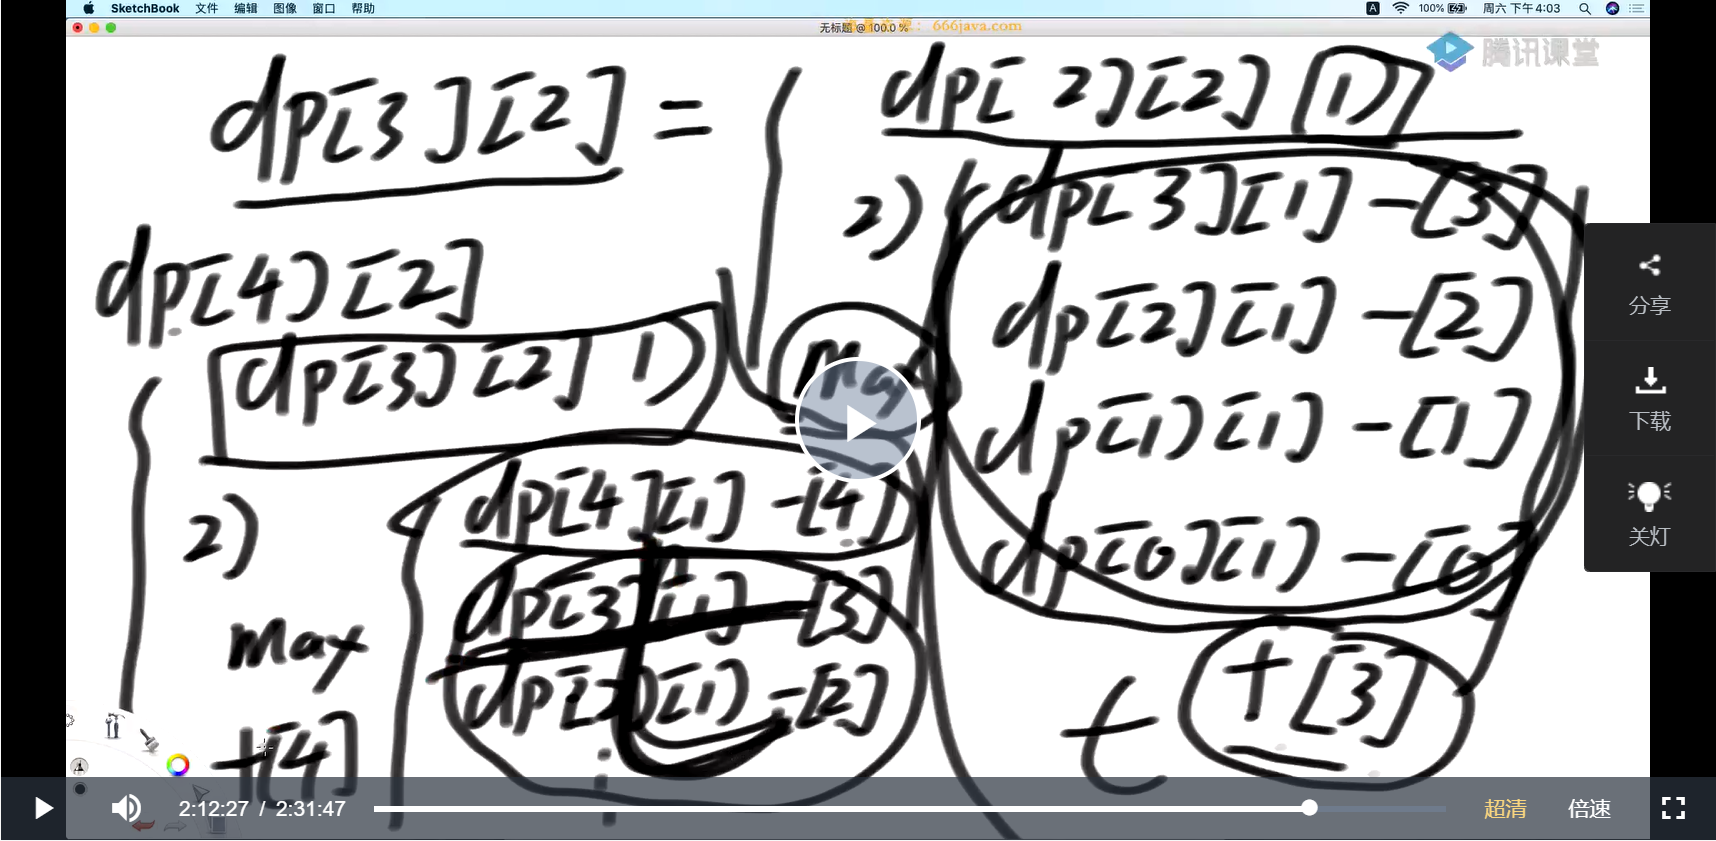 SketchBook 文件 编辑 图像 窗口 帮助
A 100% 周六 下午4:03
无标题 @ 100.0 %
666java.com
腾讯课堂
dp[3][2] =
dp[2][2] 1)
2) dp[3][1] - [3]
dp[2][1] - [2]
dp[1][1] - [1]
dp[0][1] - [0]
+ [3]
dp[4][2]
dp[3][2] 1)
2)
max
dp[4][1] - [4]
dp[3][1] - [3]
dp[2][1] - [2]
+[4]
max
t
分享
下载
关灯
2:12:27 / 2:31:47
超清 倍速